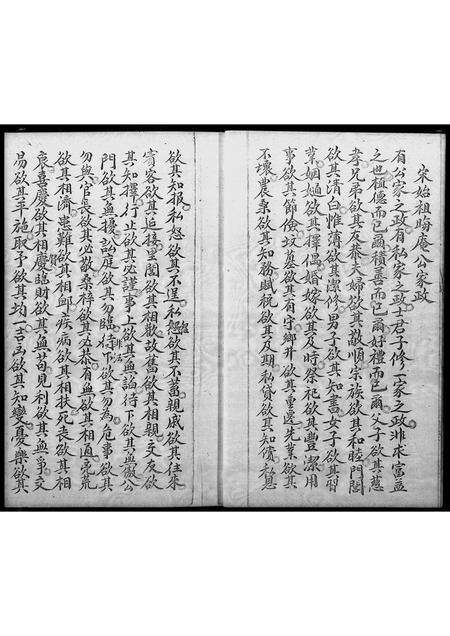 宋始祖晦庵公家政
有公家之政有私家之政士君子修一家之政非求富益
之也植德而已爾積善而已爾好禮而已爾父子欲其慈
孝兄弟欲其友恭夫婦欲其敬順宗族欲其和睦門閭
欲其清白帷薄欲其潔修男子欲其知書女子欲其習
業姻媾欲其擇偶婚嫁欲其及時祭祀欲其豐潔用
事欲其節儉墳墓欲其有守鄉井欲其重遷先業欲其
不壞農桑欲其知務賦税欲其及期私貸欲其知償私恩
欲其知報私怨欲其不逞私忿欲其不蓄親戚欲其往來
賓客欲其延接里閭欲其相歡故舊欲其相親交友欲
其知擇行止欲其必謹事上欲其無諂待下欲其無傲公
門欲其無擾訟庭欲其勿臨非法欲其勿為危事欲其
勿與官長欲其必敬桑梓欲其必恭有無欲其相通凶荒
欲其相濟患難欲其相卹疾病欲其相扶死喪欲其相
哀喜慶欲其相慶臨財欲其無苟見利欲其無爭交
易欲其平施取予欲其均一吉凶欲其知變憂樂欲其